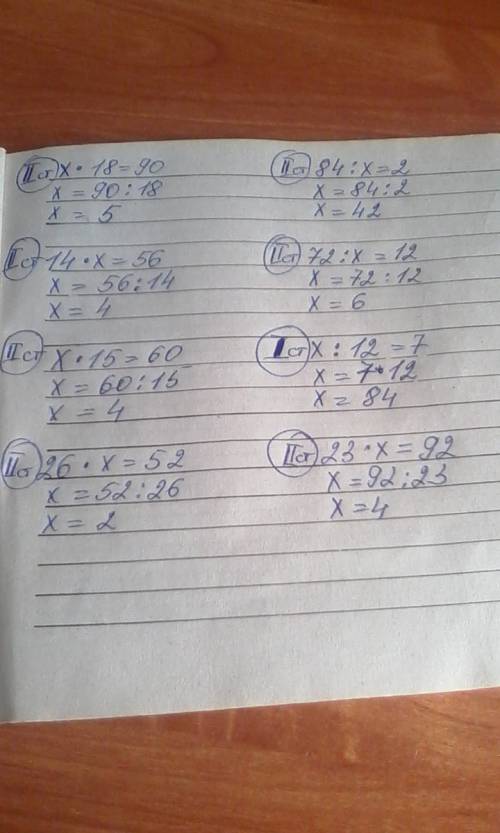 IIст x · 18 = 90
x = 90 : 18
x = 5
Iст 14 · x = 56
x = 56 : 14
x = 4
IIст x · 15 = 60
x = 60 : 15
x = 4
IIст 26 · x = 52
x = 52 : 26
x = 2
IIст 84 : x = 2
x = 84 : 2
x = 42
IIст 72 : x = 12
x = 72 : 12
x = 6
Iст x : 12 = 7
x = 7 · 12
x = 84
IIст 23 · x = 92
x = 92 : 23
x = 4